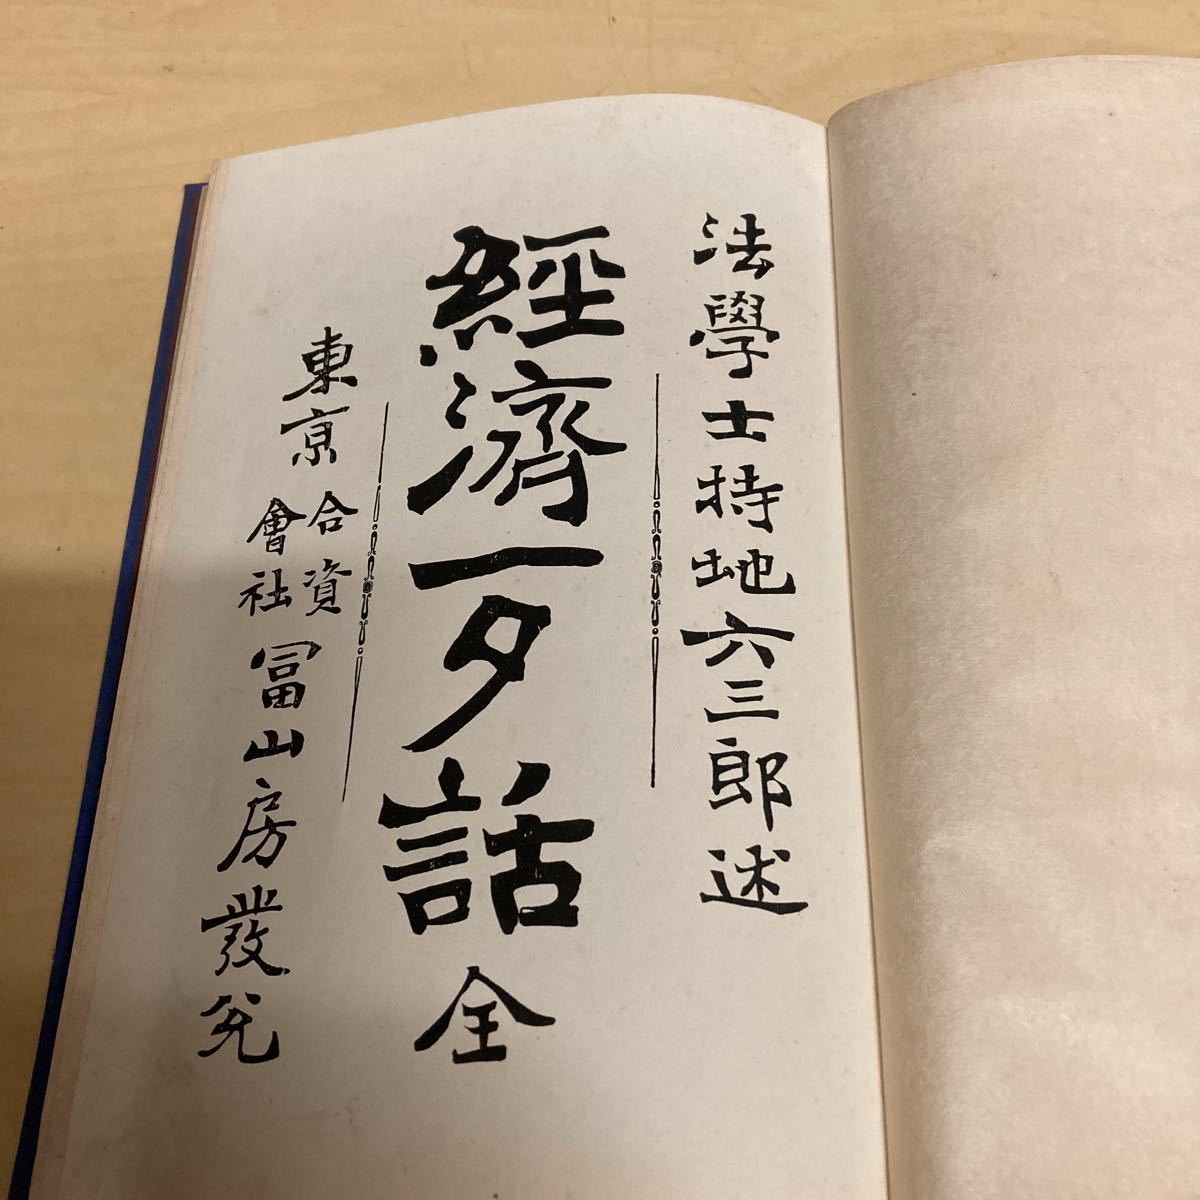 法學士持地六三郎述
經濟一夕話 全
東京 合資會社 冨山房發兌